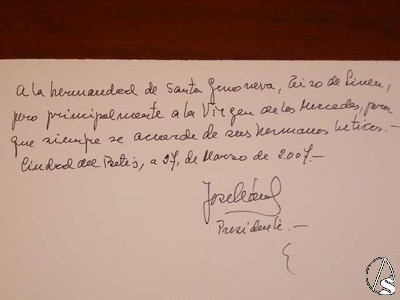 A la hermandad de Santa Genoveva,
pero principalmente a la Virgen de las Mercedes, para
que siempre se acuerde de sus hermanos beticos.-
Ciudad del Betis, a 27, de Marzo de 2.007.-
Presidente.-